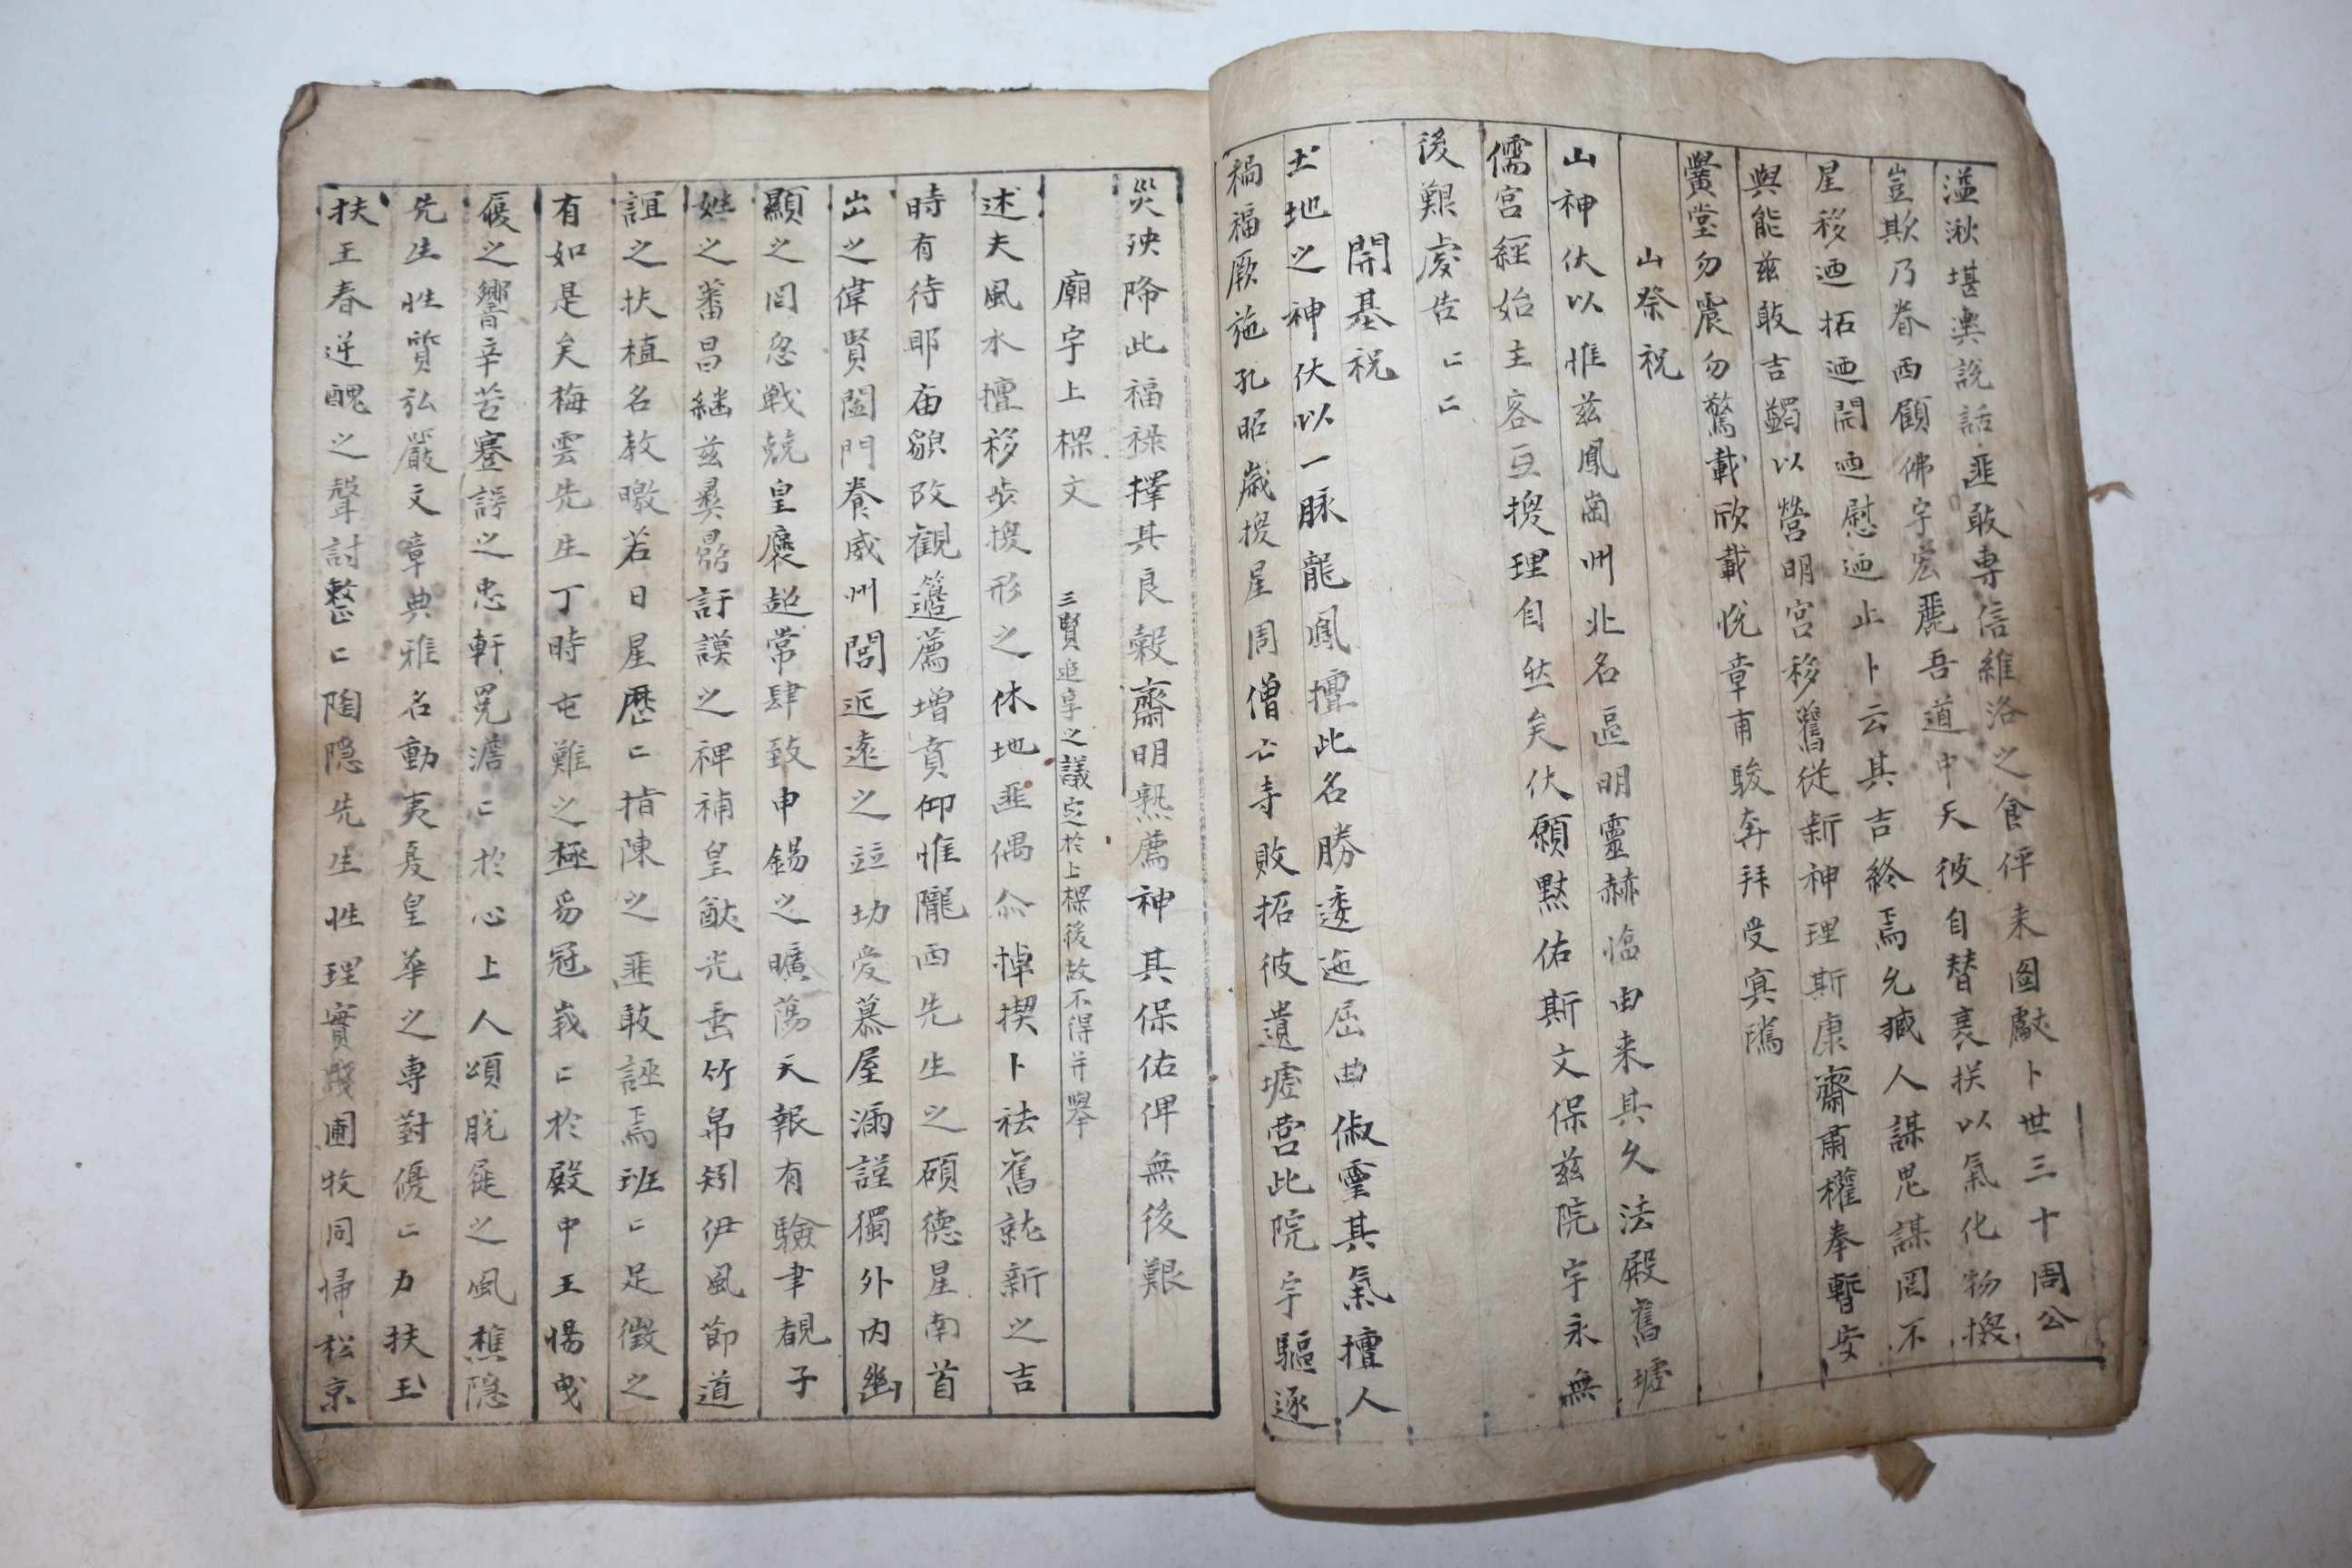 溢湫堪輿說話匪敢専信維洛之食伻来圖獻卜世三十周公
豈欺乃眷西顧佛宇宏麗吾道中天彼自替衰挨以氣化物換
星移迺拓迺開迺慰迺止卜云其吉終焉允臧人謀鬼謀罔不
與能兹敢吉蠲以營明宮移舊從新神理斯康齋肅權奉暫安
黌堂勿震勿驚載欣載悅章甫駿奔拜受冥隲
山祭祝
山神伏以惟兹鳳崗州北名區明靈赫臨由来其久法殿舊墟
儒宮經始主客互換理自然矣伏願黙佑斯文保兹院宇永無
後艱虔告〻〻
開基祝
土地之神伏以一脉龍鳳擅此名勝逶迤屈曲俶靈其氣擅人
禍福厥施孔昭歲換星周僧亡寺敗拓彼遺墟營此院宇驅逐
災殃降此福祿擇其良穀齋明熟薦神其保佑俾無後艱
廟宇上樑文 三賢追享之議㝎於上樑後故不得并舉
述夫風水擅移步換形之休地匪偶尒棹楔卜祛舊就新之吉
時有待耶庙貌改觀籩薦增賁仰惟隴西先生之碩德星南首
出之偉賢闔門養威州閭近遠之竝功爱慕屋漏謹獨外内幽
顯之罔忽戦兢皇褒超常肆致申錫之曠蕩天報有驗聿覩子
姓之蕃昌繼兹彛鼎訏謨之裨補皇猷光垂竹帛矧伊風節道
誼之扶植名教暾若日星歷〻指陳之匪敢誣焉班〻足徴之
有如是矣梅雲先生丁時屯難之極豸冠峩〻於殿中王惕曳
履之響辛苦蹇諤之忠軒冕澹〻於心上人頌脱屣之風樵隱
先生性質弘嚴文章典雅名動夷夏皇華之専對優〻力扶王
扶王春逆醜之聲討整〻陶隠先生性理實踐圃牧同掃松京